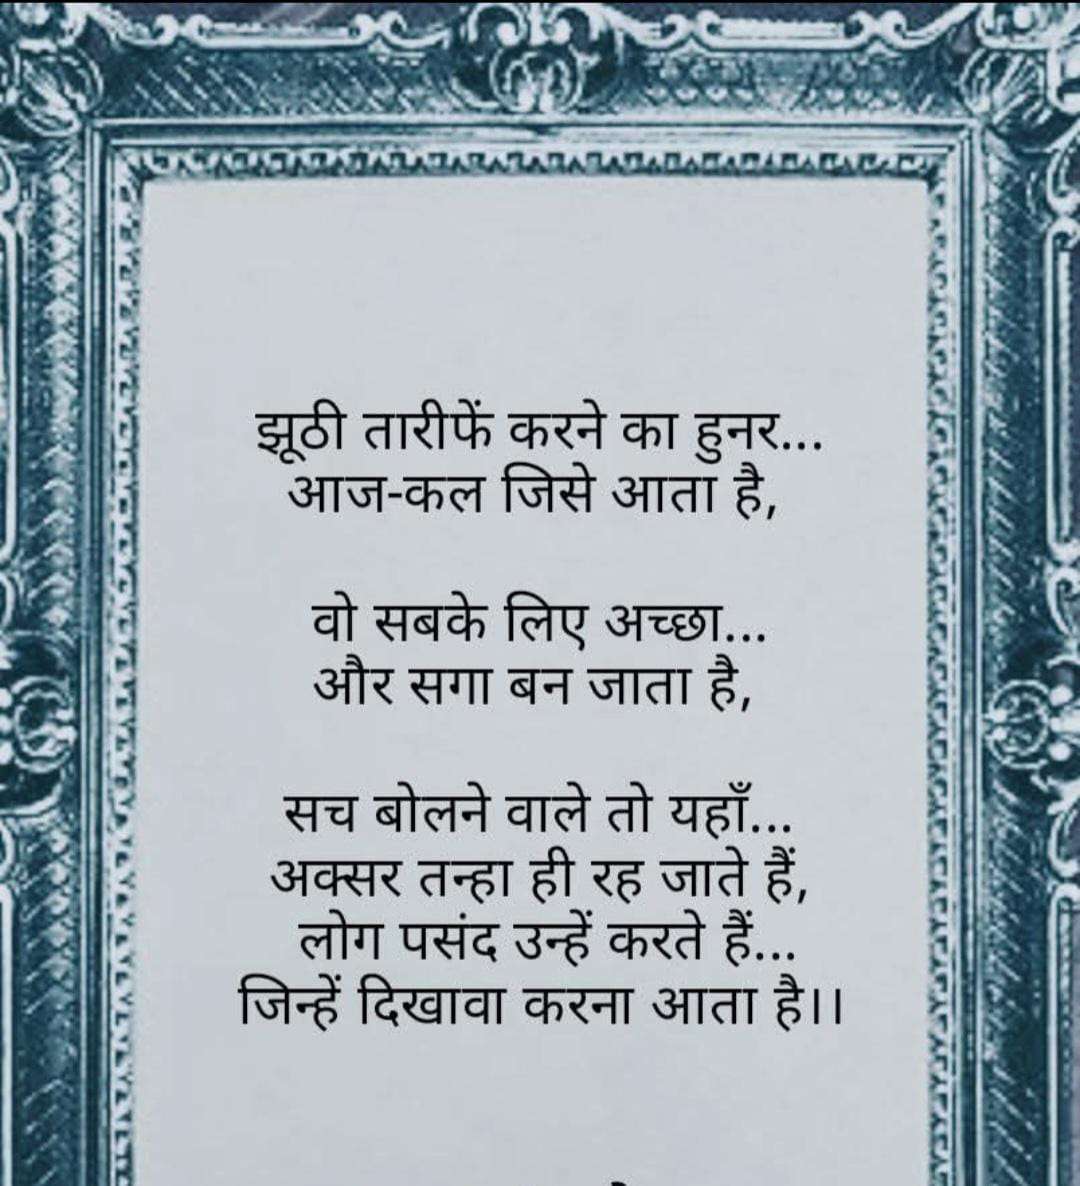 झूठी तारीफें करने का हुनर...
आज-कल जिसे आता है,
वो सबके लिए अच्छा...
और सगा बन जाता है,
सच बोलने वाले तो यहाँ...
अक्सर तन्हा ही रह जाते हैं,
लोग पसंद उन्हें करते हैं...
जिन्हें दिखावा करना आता है।।